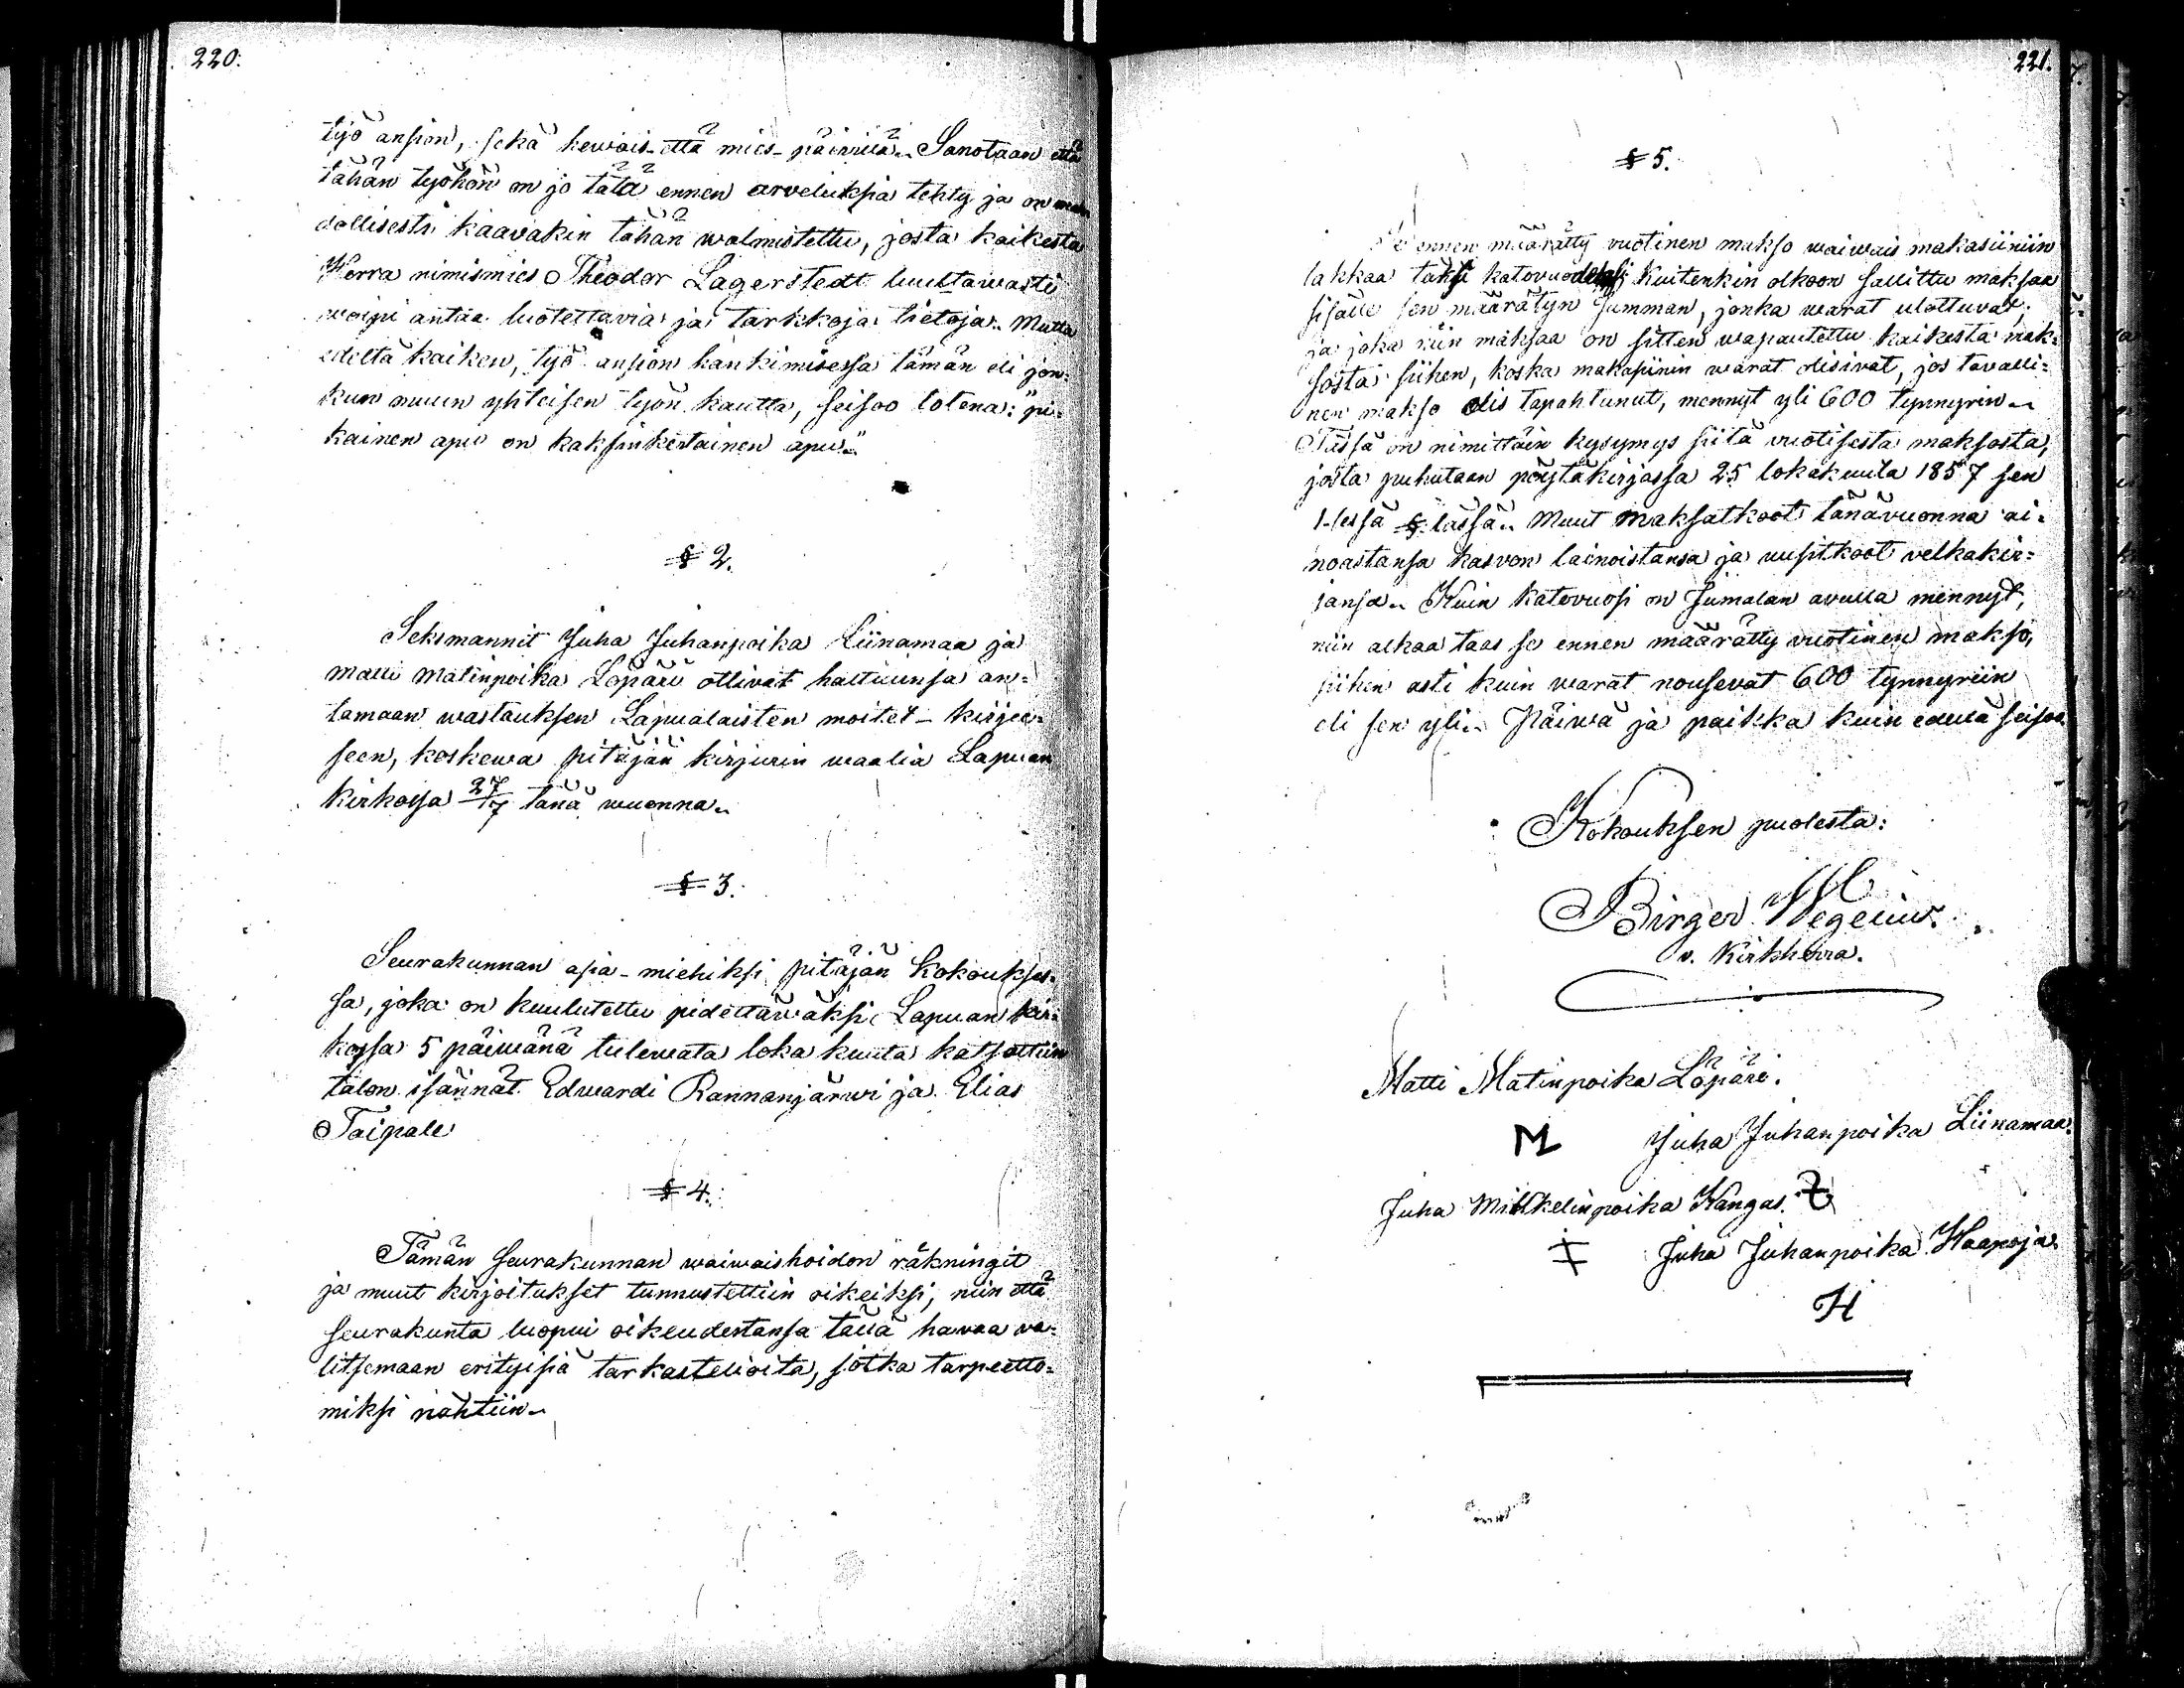 220.
työ ansion, sekä hewois- että mies-päiwillä. Sanotaan että
tähän työhön on jo tätä ennen arveluksia tehty ja on
dollisesti kaavakin tähän walmistettu, josta kaikesta
Herra nimismies Theodor Lagerstedt luultawasti
woipi antaa luotettavia ja tarkkoja tietoja. Mutta
edeltä kaiken, työ ansion hankimisessa tämän eli jon=
kun muun yhteisen työn kautta, seisoo totena: "pi=
kainen apu on kaksinkertainen apu."
§ 2.
Seksmannit Juha Juhanpoika Liinamaa ja
Matti Matinpoika Löpäri ottivat haltuunsa an=
tamaan wastauksen Lapualaisten moitet-kirjee=
seen, koskewa pitäjän kirjurin waalia Lapuan
kirkossa 27/7 tänä wuonna.
§ 3.
Seurakunnan asia-miehiksi pitäjän kokoukses=
sa, joka on kuulutettu pidettäwäksi Lapuan kir=
kossa 5 päiwänä tulewata lokakuuta katsottiin
talon isännät Edwardi Rannanjärwi ja Elias
Taipale
§ 4.
Tämän seurakunnan waiwaishoidon räkningit
ja muut kirjoitukset tunnustettiin oikeiksi, niin että
seurakunta luopui oikeudestansa tällä hawaa wa=
litsemaan erityisiä tarkastelioita, jotka tarpeetto=
miksi nähtiin.
221.
§ 5.
Se ennen määrätty vuotinen makso waiwais makasiiniin
lakkaa täksi katovuodeksi. Kuitenkin olkoon sallittu maksaa
sisälle sen määrätyn summan, jonka warat ulottuvat,
ja joka niin maksaa on sitten wapautettu kaikesta mak=
sosta siihen, koska makasiinin warat olisivat, jos tavalli=
nen makso olis tapahtunut, mennyt yli 600 tynnyrin.
Tässä on nimittäin kysymys siitä vuotisesta maksosta,
josta puhutaan pöytäkirjassa 25 lokakuuta 1857 sen
1-sessä §:lässä. Muut maksatkoot tänävuonna ai=
noastansa kasvon lainoistansa ja uusitkoot velkakir=
jansa. Kuin katovuosi on Jumalan avulla mennyt,
niin alkaa taas se ennen määrätty vuotinen makso,
siihen asti kuin warat nousevat 600 tynnyriin
eli sen yli. Päiwä ja paikka kuin edellä seisoo.
Kokouksen puolesta:
Birger Wegelius.
v. Kirkherra.
Matti Matinpoika Löpäri.
M Juha Juhanpoika Liinamaa.
Juha Mikkelinpoika Kangas.
Juha Juhanpoika Haapoja
H